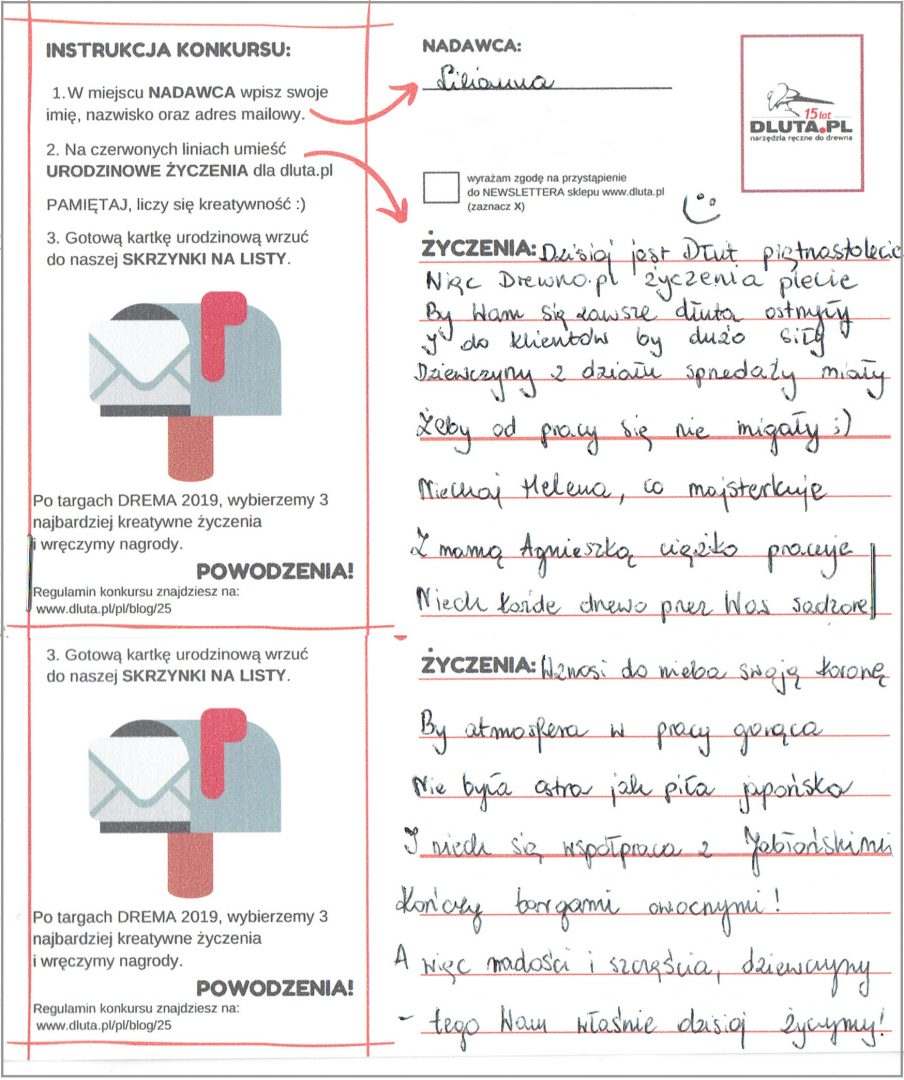 INSTRUKCJA KONKURSU:
1.W miejscu NADAWCA wpisz swoje
imię, nazwisko oraz adres mailowy.
2. Na czerwonych liniach umieść
URODZINOWE ŻYCZENIA dla dluta.pl
PAMIĘTAJ, liczy się kreatywność :)
3. Gotową kartkę urodzinową wrzuć
do naszej SKRZYNKI NA LISTY.
Po targach DREMA 2019, wybierzemy 3
najbardziej kreatywne życzenia
i wręczymy nagrody.
POWODZENIA!
Regulamin konkursu znajdziesz na:
www.dluta.pl/pl/blog/25
NADAWCA:
Lilianna
15 lat
DLUTA.PL
narzędzia ręczne do drewna
wyrażam zgodę na przystąpienie
do NEWSLETTERA sklepu www.dluta.pl
(zaznacz X)
ŻYCZENIA: Dzisiaj jest Dłut piętnastolecie
Więc Drewno.pl życzenia plecie
By Wam się zawsze dłuta ostrzyły
I do klientów by dużo siły
Dziewczyny z działu sprzedaży miały
Żeby od pracy się nie migały ;)
Niechaj Helena, co majsterkuje
Z mamą Agnieszką ciężko pracuje
Niech każde drzewo przez Was sadzone
3. Gotową kartkę urodzinową wrzuć
do naszej SKRZYNKI NA LISTY.
Po targach DREMA 2019, wybierzemy 3
najbardziej kreatywne życzenia
i wręczymy nagrody.
POWODZENIA!
Regulamin konkursu znajdziesz na:
www.dluta.pl/pl/blog/25
ŻYCZENIA: Wznosi do nieba swoją koronę
By atmosfera w pracy gorąca
Nie była ostra jak piła japońska
I niech się współpraca z Jabłońskimi
Kończy targami owocnymi!
A więc radości i szczęścia, dziewczyny
- tego Wam właśnie dzisiaj życzymy!